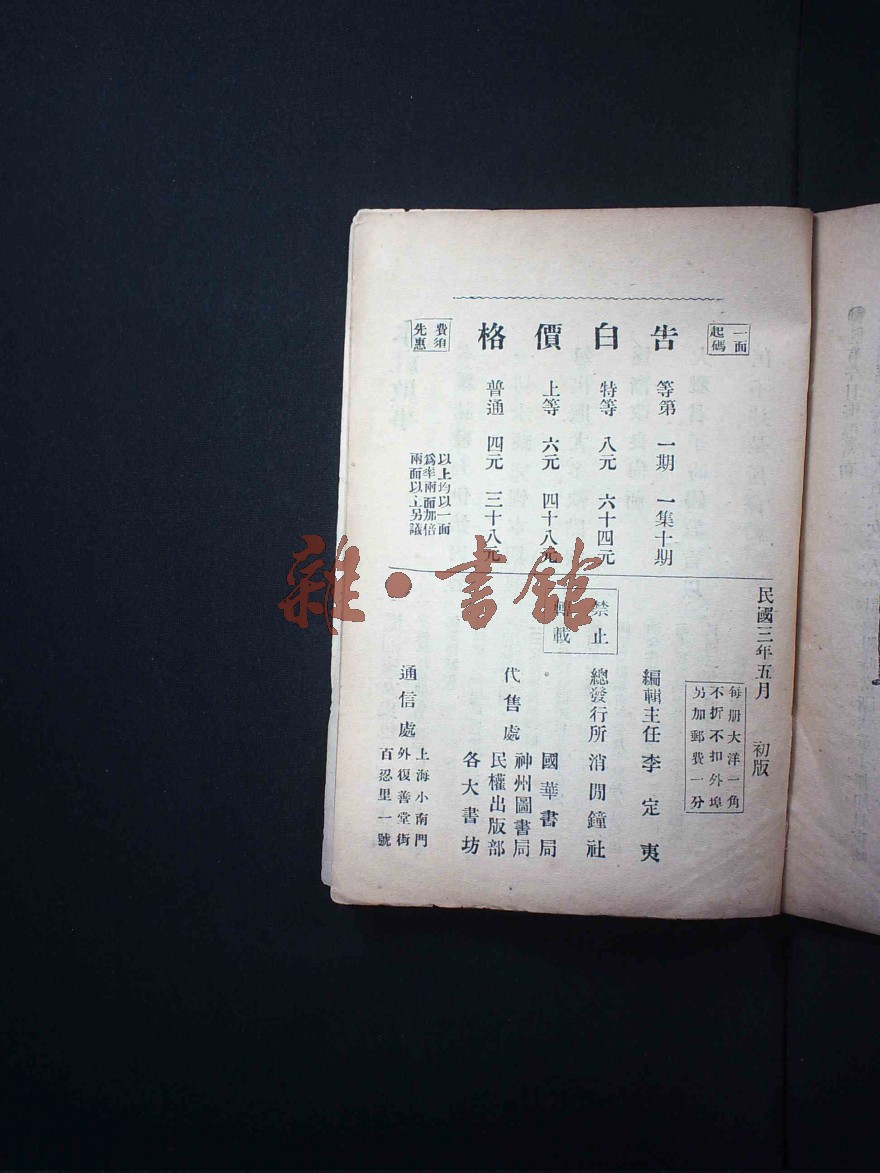 一面
起碼
告白價格
費須
先惠
等第 一期 一集十期
特等 八元 六十四元
上等 六元 四十八元
普通 四元 三十八元
以上均以一面
為率兩面加倍
兩面以上另議
民國三年五月 初版
每册大洋一角
不折不扣外埠
另加郵費一分
禁止
轉載
編輯主任 李定夷
總發行所 消閒鐘社
代售處
國華書局
神州圖書局
民權出版部
各大書坊
通信處
上海小南門
外復善堂街
百忍里一號
雜·書館